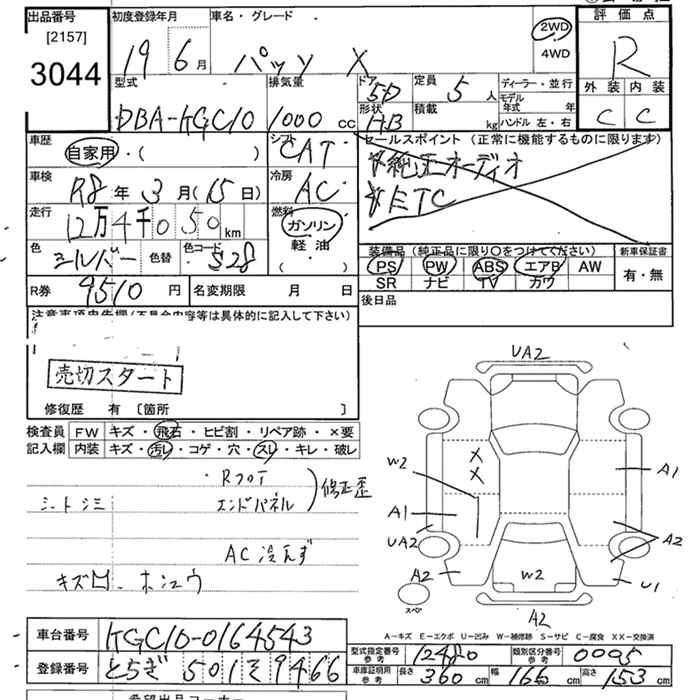 出品番号
[2157]
3044
初度登録年月
19 6月
車名・グレード
パッソ X
2WD
4WD
評価点
R
外装 内装
C C
型式
DBA-KGC10
排気量
1000 cc
ドア 5D
形状 HB
定員 5人
積載 kg
ディーラー・並行
モデル年式 年
ハンドル 左・右
車歴
自家用・( )
シフト
CAT
セールスポイント (正常に機能するものに限ります)
純正オーディオ
ETC
車検
R8年 3月(15日)
冷房
AC
走行
12万4千050km
燃料
ガソリン
軽油
( ・ )
色
シルバー
色替
色コード
S28
装備品 (純正品に限り○をつけてください)
PS PW ABS エアB AW
SR ナビ TV カワ
新車保証書
有・無
R券 9510円
名変期限 月 日
後日品
注意事項申告欄(不具合内容等は具体的に記入して下さい)
売切スタート
修復歴 有 [箇所 ]
検査員
記入欄
FW キズ・飛石・ヒビ割・リペア跡・×要
内装 キズ・汚レ・コゲ・穴・スレ・キレ・破レ
・Rフロア
エンドパネル
修正歪
シートシミ
AC冷えず
キズ凹・ホシュウ
UA2
W2
A1
A1
UA2
A2
A2
W2
U1
A2
スペア
A-キズ E-エクボ U-凹み W-補修跡 S-サビ C-腐食 XX-交換済
車台番号 KGC10-0164543
登録番号 とちぎ 501 そ 9466
型式指定番号 参考 12480
類別区分番号 参考 0005
車庫証明用 参考 長さ 360cm 幅 166cm 高さ 153cm
希望出品コーナー